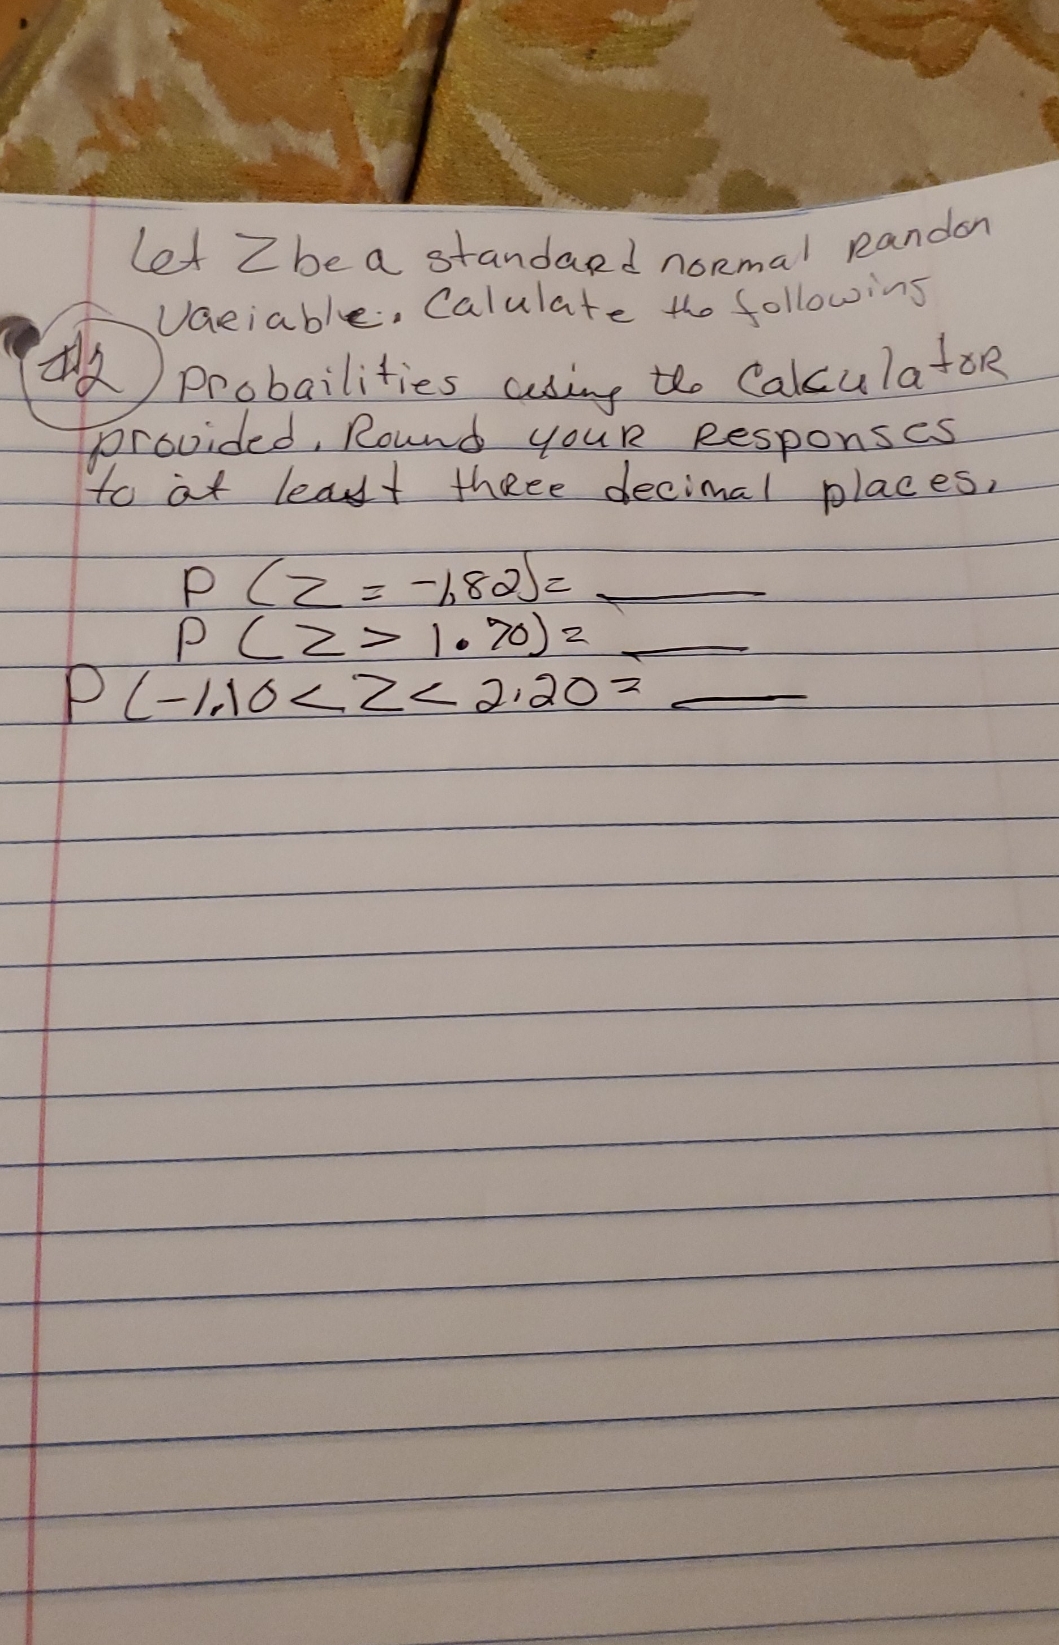 Let Z be a standard normal Randon
Variable. Calulate the following
#2 Probailities using the Calculator
provided. Round your Responses
to at least three decimal places.
P (Z = -1.82) = ____
P (Z > 1.70) = ____
P (-1.10 < Z < 2.20 = ____